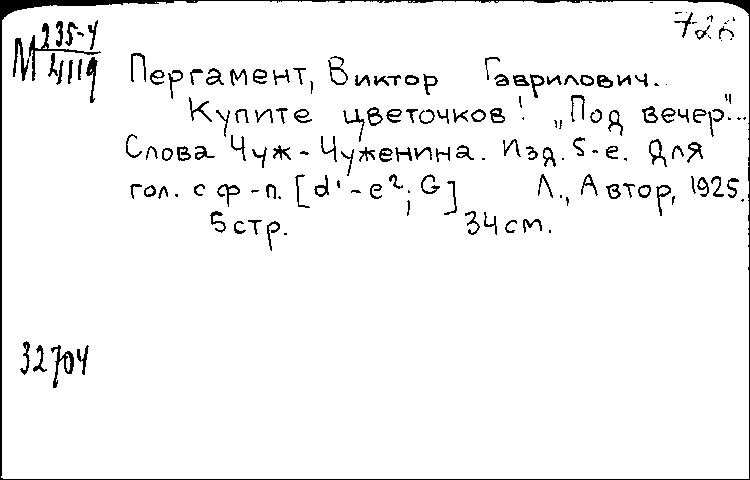 726
М 235-4
4119
Пергамент, Виктор Гаврилович.
Купите цветочков! „Под вечер"...
Слова Чуж-Чуженина. Изд. 5-е. Для
гол. с ф-п. [d¹-e²; G] Л., Автор, 1925.
5 стр. 34 см.
32704